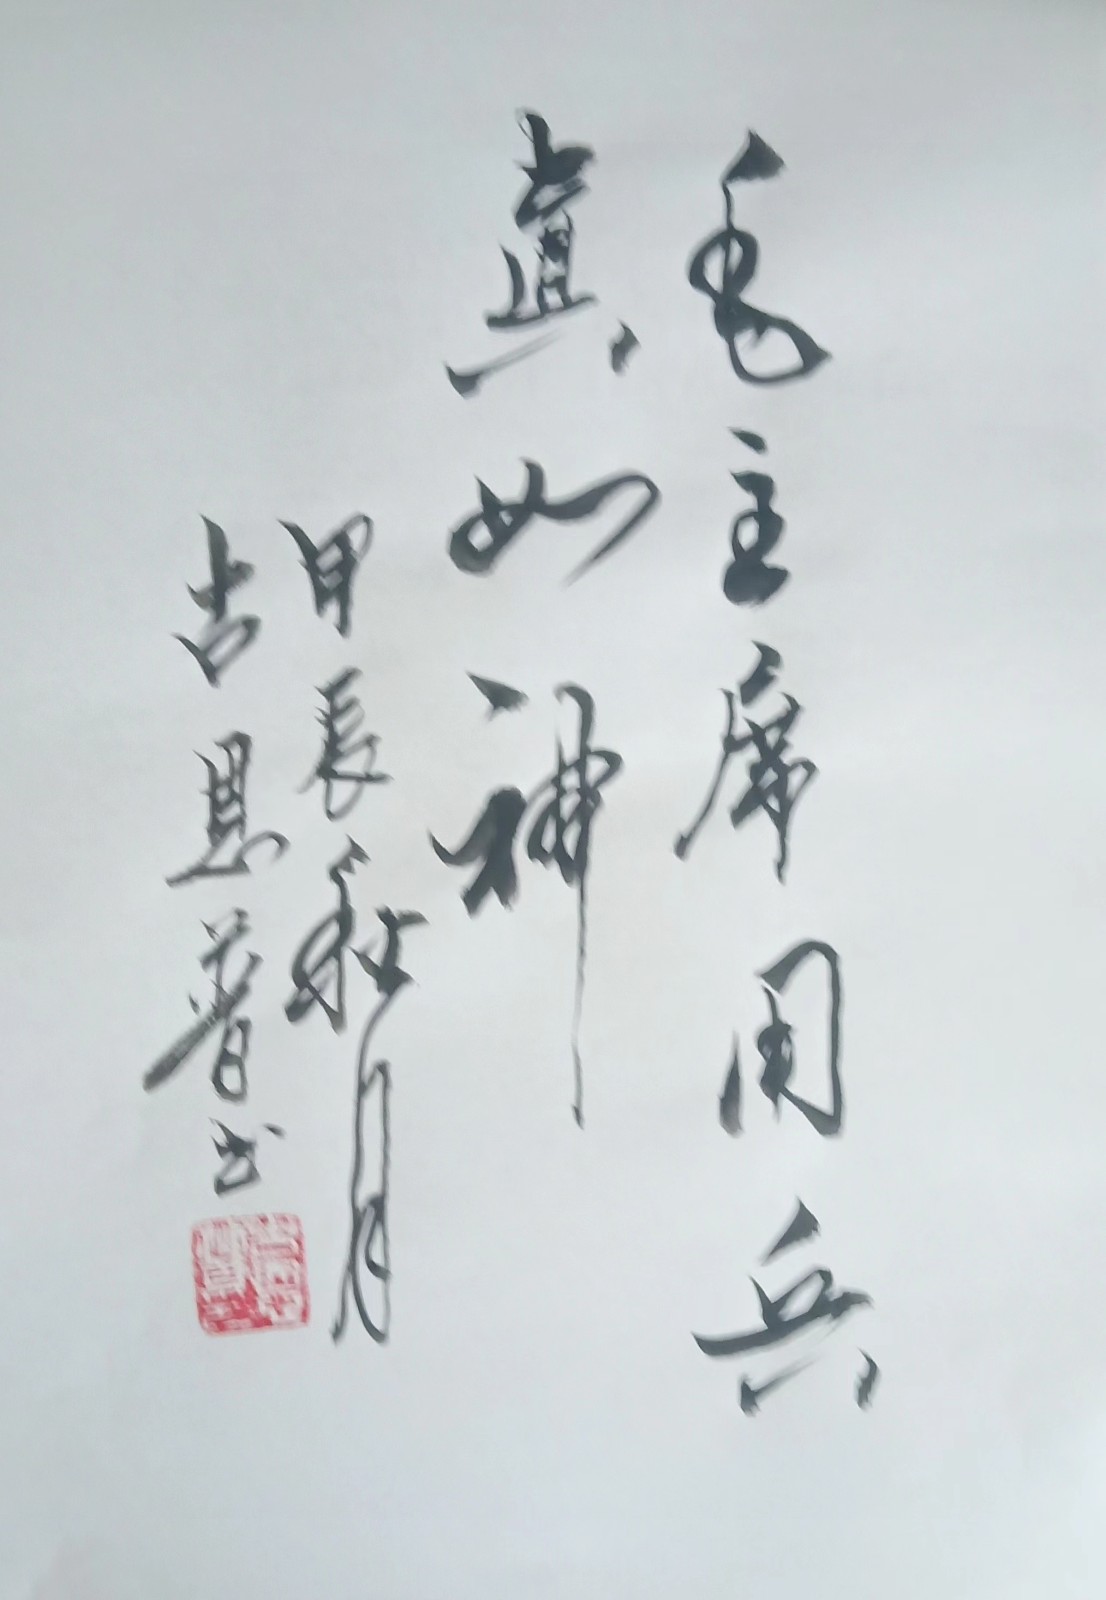 毛主席用兵
真如神
甲辰秋月
古恩普书